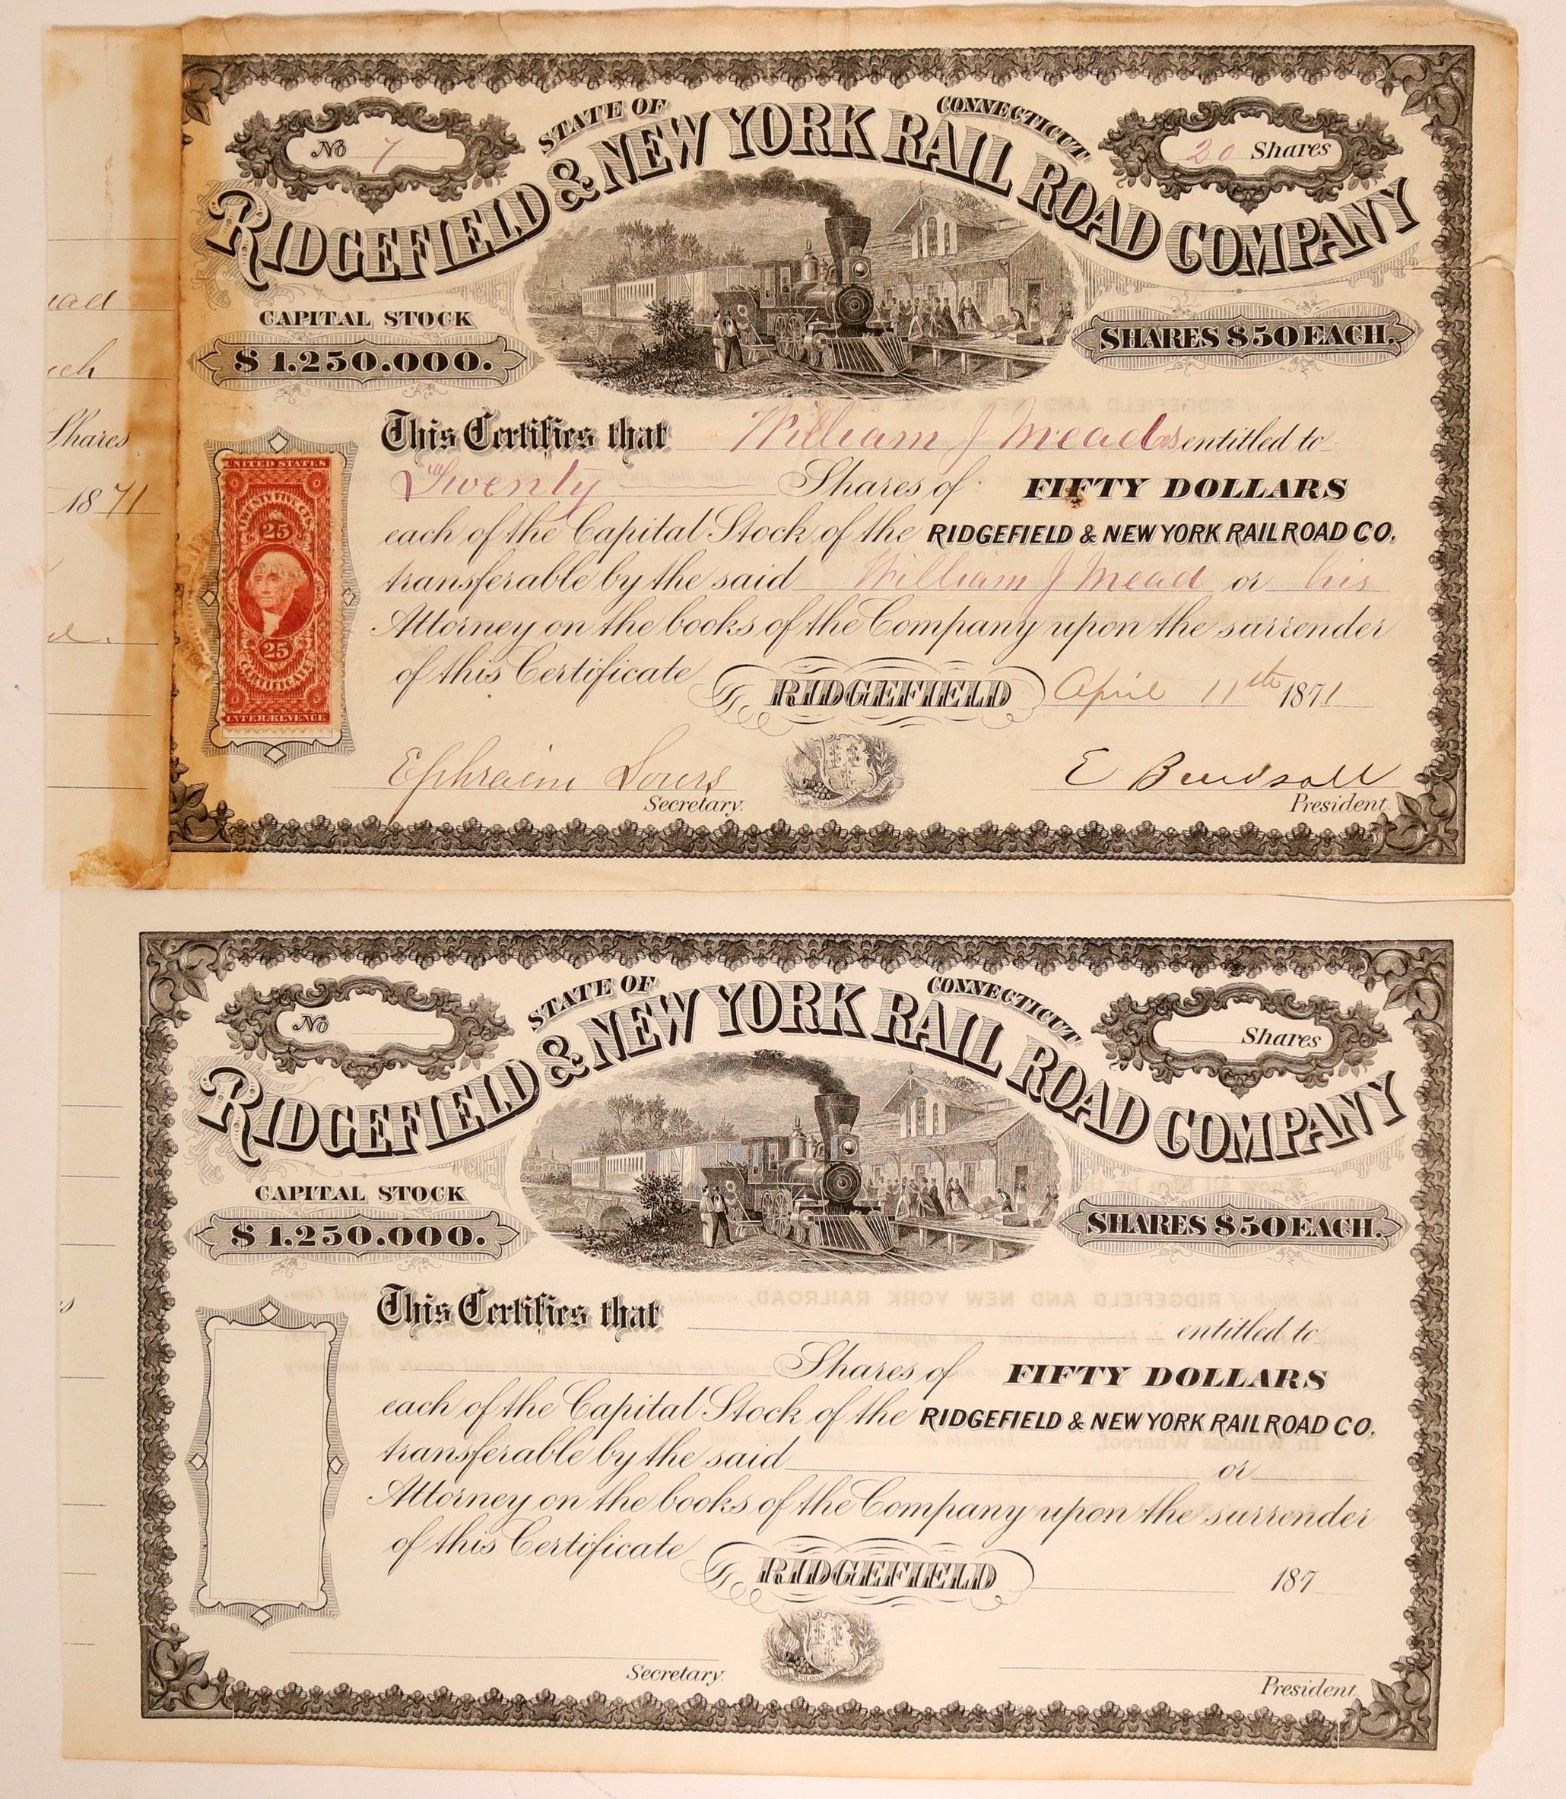 STATE OF CONNECTICUT
No 7
20 Shares
RIDGEFIELD & NEW YORK RAIL ROAD COMPANY
CAPITAL STOCK
$1.250.000.
SHARES $50 EACH.
This Certifies that William J Mead is entitled to
Twenty Shares of FIFTY DOLLARS
each of the Capital Stock of the RIDGEFIELD & NEW YORK RAIL ROAD CO.
transferable by the said William J Mead or his
Attorney on the books of the Company upon the surrender
of this Certificate
RIDGEFIELD April 11th 1871
Ephraim
Secretary.
E
President.
Shares
1871
UNITED STATES
25
25
CERTIFICATE
INTER. REVENUE
STATE OF CONNECTICUT
No
Shares
RIDGEFIELD & NEW YORK RAIL ROAD COMPANY
CAPITAL STOCK
$1.250.000.
SHARES $50 EACH.
This Certifies that entitled to
Shares of FIFTY DOLLARS
each of the Capital Stock of the RIDGEFIELD & NEW YORK RAIL ROAD CO.
transferable by the said or
Attorney on the books of the Company upon the surrender
of this Certificate
RIDGEFIELD 187
Secretary.
President.